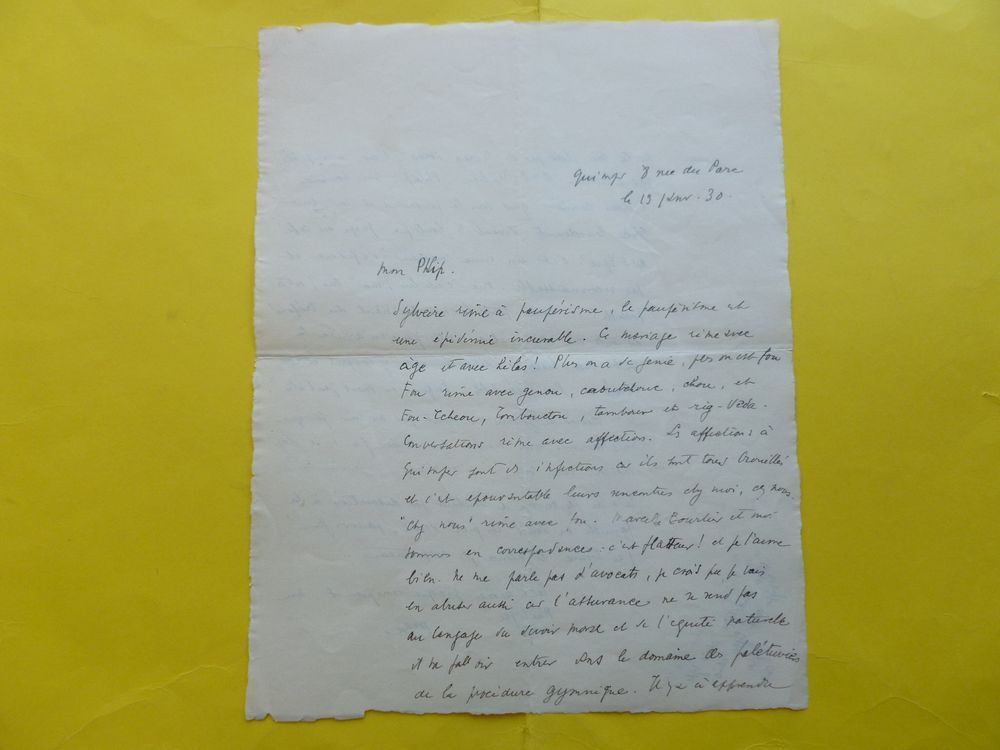 Quimper 8 rue du Parc
le 19 janv. 30.
mon Philip.
Sylveire rime à paupérisme, le paupérisme est
une épidémie incurable. Ce mariage rime avec
âge et avec hélas! Plus on a de génie, plus on est fou
Fou rime avec genou, caoutchouc, chou, et
Fou-Tcheou, Tombouctou, tambour et rig-Veda.
Conversations rime avec affection. Les affections à
Quimper sont des infections car ils sont tous brouillés
et c'est epouvantable leurs rencontres chez moi, chez nous.
"chez nous" rime avec fou. Marcelle et moi
sommes en correspondance. c'est flatteur! et je l'aime
bien. Ne me parle pas d'avocats, je crois que je vais
en abuser aussi car l'assurance ne se rend pas
au langage du devoir moral et de l'equité naturelle
il va falloir entrer dans le domaine des palétuviers
de la procédure gymnique. Il y a à apprendre